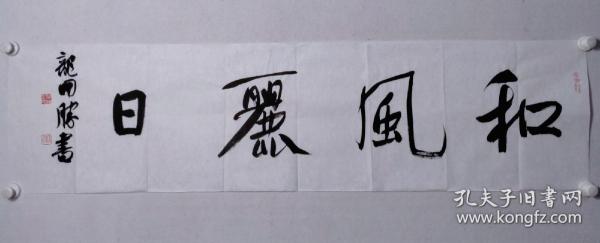 和風麗日
龍田勝書
孔夫子旧书网
www.kongfz.com